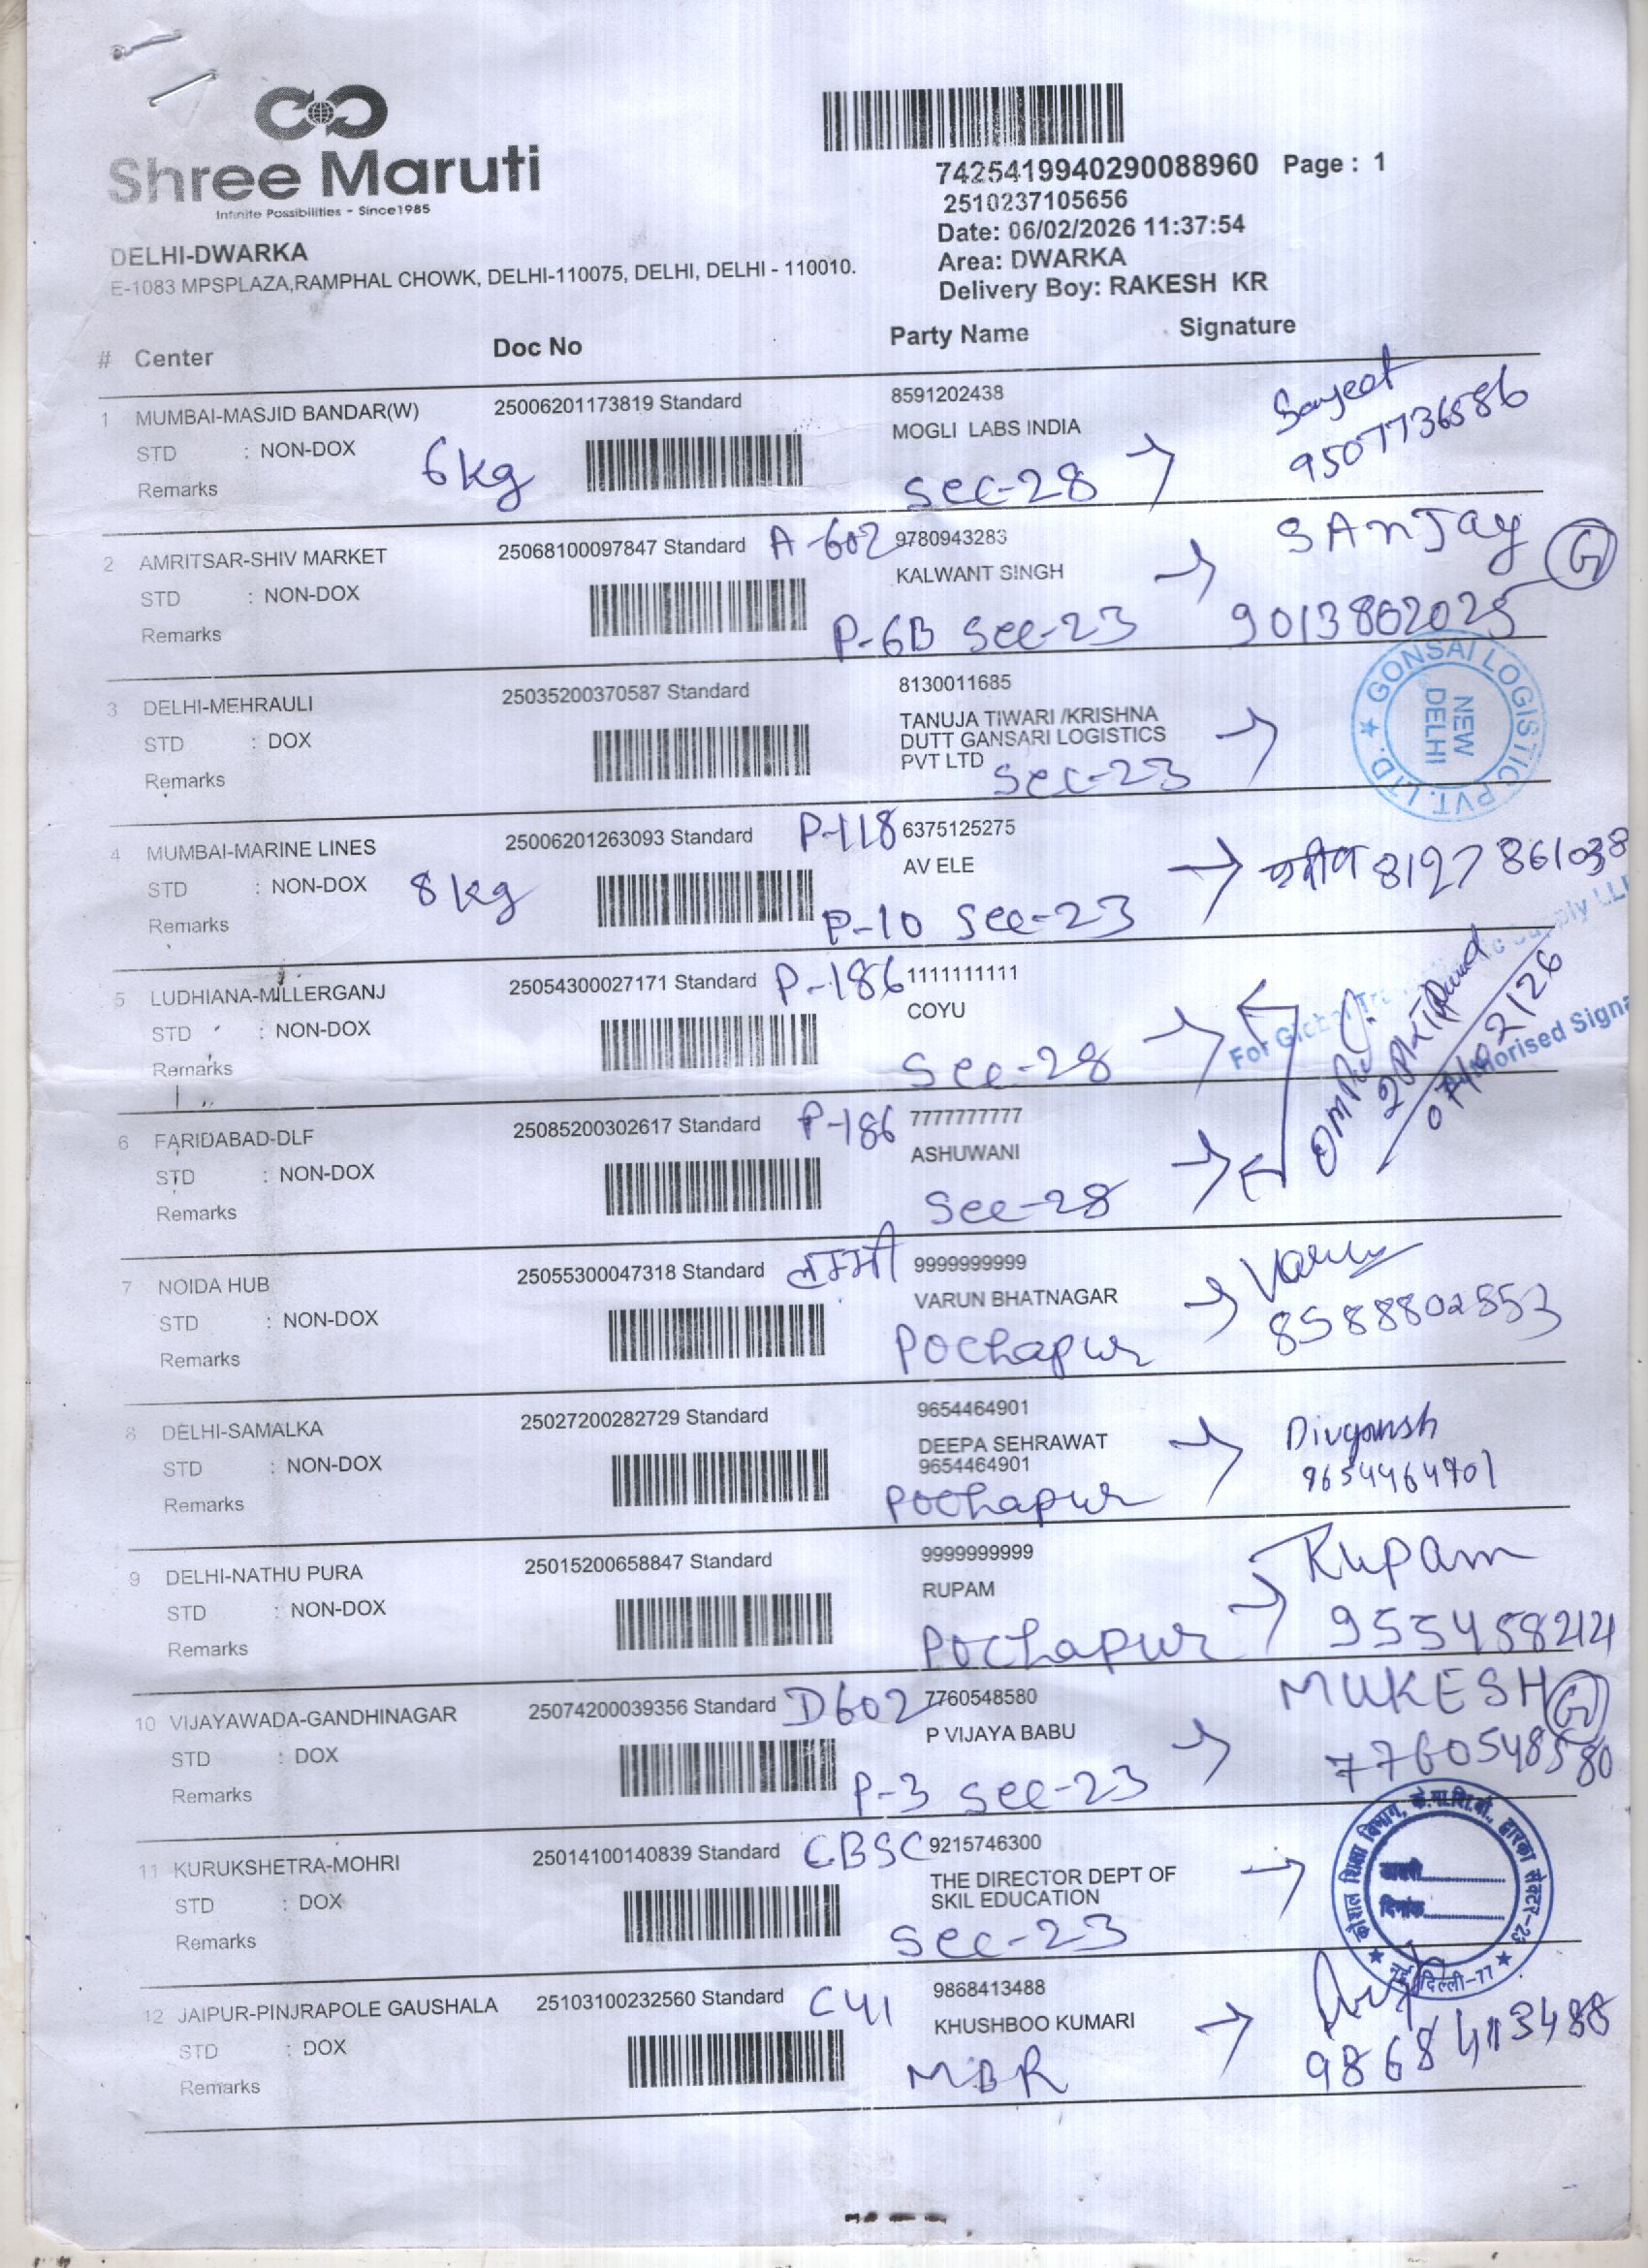 Shree Maruti
Infinite Possibilities - Since1985
7425419940290088960 Page : 1
2510237105656
Date: 06/02/2026 11:37:54
Area: DWARKA
Delivery Boy: RAKESH KR
DELHI-DWARKA
E-1083 MPSPLAZA,RAMPHAL CHOWK, DELHI-110075, DELHI, DELHI - 110010.
# Center Doc No Party Name Signature
1 MUMBAI-MASJID BANDAR(W) 25006201173819 Standard 8591202438
MOGLI LABS INDIA
STD : NON-DOX
Remarks
6kg
Sec-28
Sanjeet
9507736586
2 AMRITSAR-SHIV MARKET 25068100097847 Standard A-602 9780943283
KALWANT SINGH
STD : NON-DOX
Remarks
P-6B Sec-23
SANJAY G
9013802025
3 DELHI-MEHRAULI 25035200370587 Standard 8130011685
TANUJA TIWARI /KRISHNA
DUTT GANSARI LOGISTICS
PVT LTD
STD : DOX
Remarks
Sec-23
GONSAI LOGISTIC PVT. LTD.
NEW
DELHI
4 MUMBAI-MARINE LINES 25006201263093 Standard P-118 6375125275
AV ELE
STD : NON-DOX
Remarks
8kg
P-10 Sec-23
8127861038
5 LUDHIANA-MILLERGANJ 25054300027171 Standard P-186 1111111111
COYU
STD : NON-DOX
Remarks
Sec-28
For Global
Supply LL
Authorised Signa
07/02/26
6 FARIDABAD-DLF 25085200302617 Standard P-186 7777777777
ASHUWANI
STD : NON-DOX
Remarks
Sec-28
7 NOIDA HUB 25055300047318 Standard 9999999999
VARUN BHATNAGAR
STD : NON-DOX
Remarks
Pochapur
Varun
8588802553
8 DELHI-SAMALKA 25027200282729 Standard 9654464901
DEEPA SEHRAWAT
9654464901
STD : NON-DOX
Remarks
Pochapur
Divyansh
9654464901
9 DELHI-NATHU PURA 25015200658847 Standard 9999999999
RUPAM
STD : NON-DOX
Remarks
Pochapur
Rupam
9554582121
10 VIJAYAWADA-GANDHINAGAR 25074200039356 Standard D602 7760548580
P VIJAYA BABU
STD : DOX
Remarks
P-3 Sec-23
MUKESH G
7760548580
11 KURUKSHETRA-MOHRI 25014100140839 Standard CBSC 9215746300
THE DIRECTOR DEPT OF
SKIL EDUCATION
STD : DOX
Remarks
Sec-23
कौशल शिक्षा विभाग, के.मा.शि.बो., द्वारका सेक्टर-23
डायरी
दिनांक
नई दिल्ली-77
12 JAIPUR-PINJRAPOLE GAUSHALA 25103100232560 Standard C41 9868413488
KHUSHBOO KUMARI
STD : DOX
Remarks
MBR
9868413488